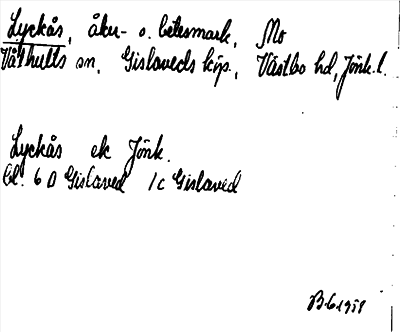 Lyckås, åker- o. betesmark, Mo
Våthults sn, Gislaveds köp., Västbo hd, Jönk.l.
Lyckås ek Jönk.
bl. 6 D Gislaved 1c Gislaved
B 6 1958